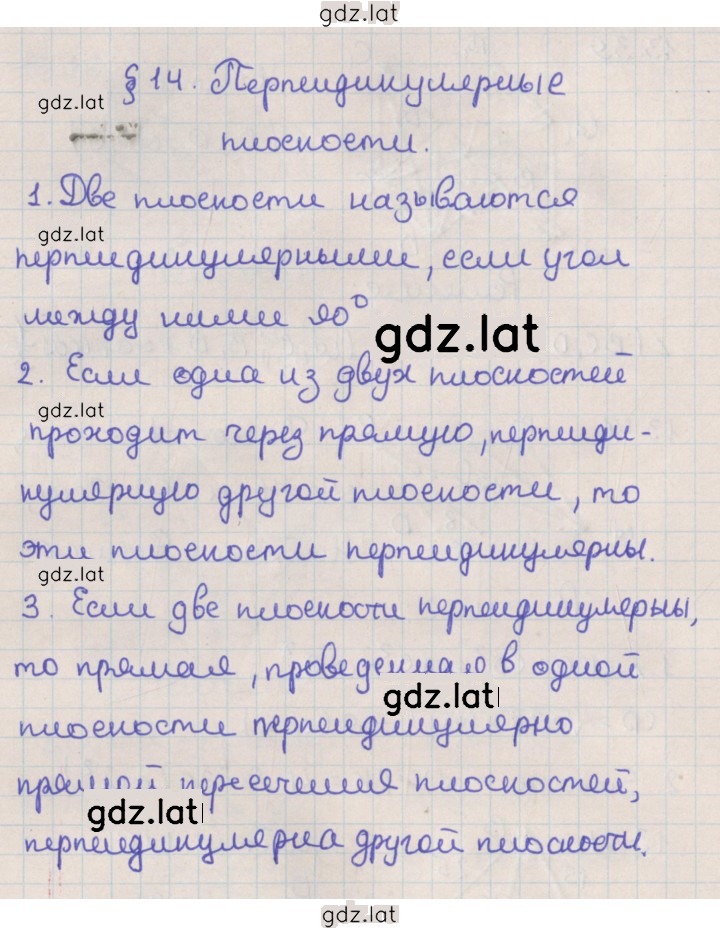 gdz.lat
§ 14. Перпендикулярные
gdz.lat
плоскости.
1. Две плоскости называются
gdz.lat
перпендикулярными, если угол
между ними 90°
gdz.lat
2. Если одна из двух плоскостей
gdz.lat
проходит через прямую, перпенди-
кулярную другой плоскости, то
эти плоскости перпендикулярны.
gdz.lat
3. Если две плоскости перпендикулярны,
то прямая, проведенная в одной
gdz.lat
плоскости перпендикулярно
прямой пересечения плоскостей,
gdz.lat
перпендикулярна другой плоскости.
gdz.lat